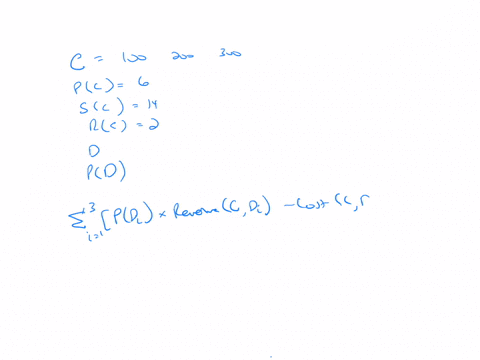 C = 100 200 300
P(C) = 6
S(C) = 14
R(C) = 2
D
P(D)
∑_{i=1}^{3} [P(D_i) × Revenue(C, D_i) - Cost(C, D